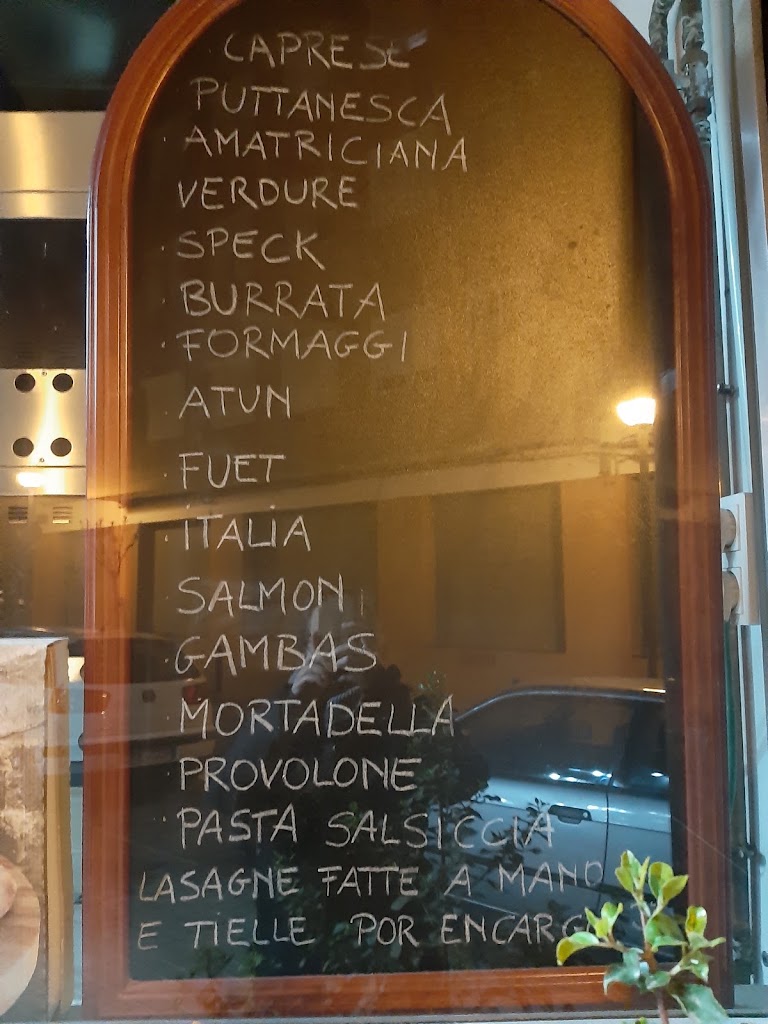 CAPRESE
PUTTANESCA
· AMATRICIANA
VERDURE
· SPECK
· BURRATA
· FORMAGGI
· ATUN
· FUET
· ITALIA
· SALMON
· GAMBAS
· MORTADELLA
· PROVOLONE
· PASTA SALSICCIA
LASAGNE FATTE A MANO
E TIELLE POR ENCARG